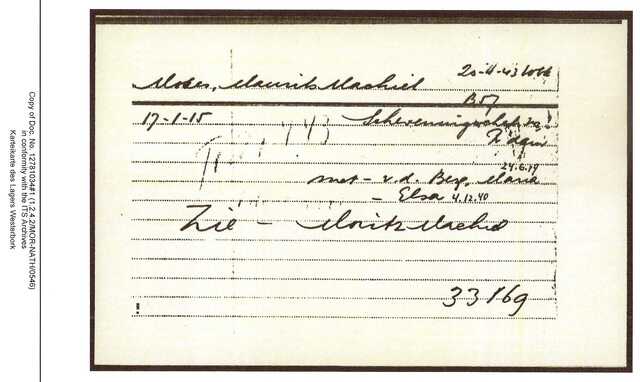 Copy of Doc. No. 12781034#1 (1.2.4.2/MOR-NATH/0546)
in conformity with the ITS Archives
Karteikarte des Lagers Westerbork
Moses, Maurits Machiel
B57
17-1-15
Z dam
24.6.19
met - v.d. Berg, Maria
- Elsa 4.12.40
Zie - Moritz Machiel
33169
!